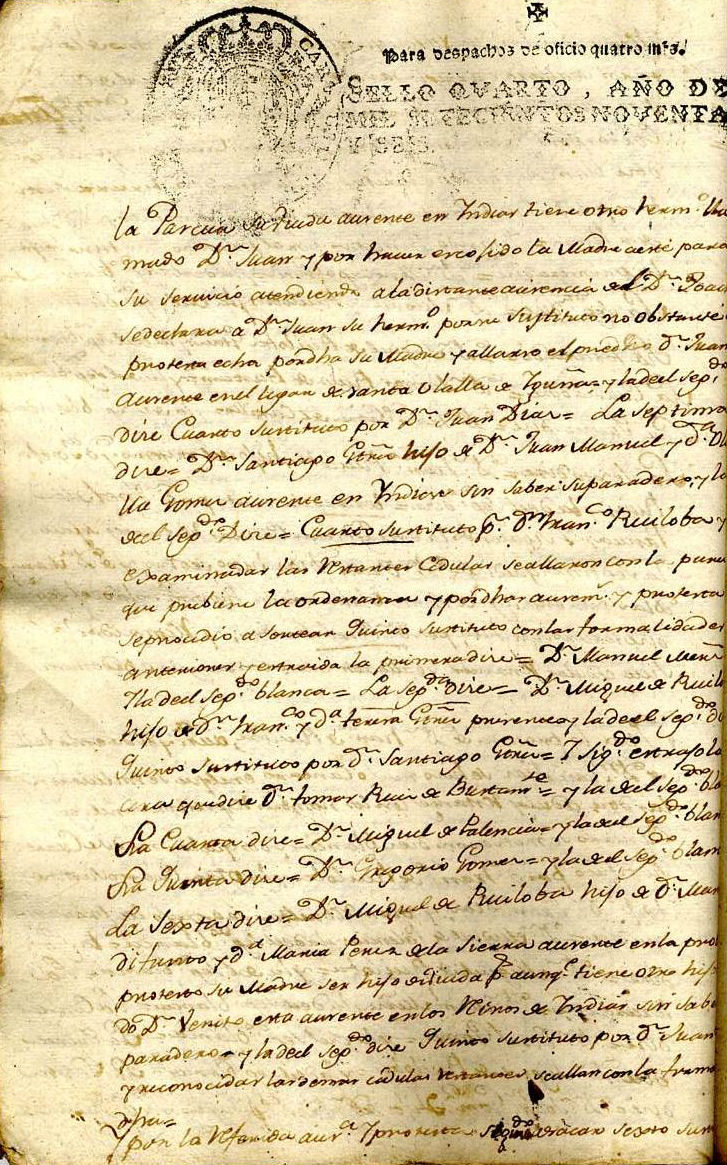 Para despachos de oficio quatro mrs.
SELLO QVARTO, AÑO DE
MIL SETECIENTOS NOVENTA
Y SEIS.
la Parcua su viuda aurente en Indias tiene otro herm.º lla
mado D.n Juan y por hacer ercosido la Madre aeste para
su servicio atendiendo ala distante aurencia del D.n Joac
sedeclara a D.n Juan su herm.º por su sustituto no obstante
protesta echa pordha su Madre y allarse el predho D.n Juan
aurente enel lugar de santa Olalla de Iguña = y la del seg.do
dice Cuarto sustituto por D.n Juan Diaz = La septima
dice = D.n Santiago Gtrz hijo de D.n Juan Manuel y D.a
Gomez aurente en Indias sin saber su paradero, y la
del seg.do Dice = Cuarto sustituto p.r D.n Fran.co Ruiloba y
examinadas las restantes Cedulas seallaron con la
que prebiene la ordenanza y pordhas auren.s y protesta
seprocedio a sortear Quinto sustituto con las formalidades
anteriores y extraida la primera dice = D.n Manuel
Yla del seg.do blanca = La seg.da dice = D.n Miguel de Ruil
hijo de D.n Fran.co y D.a teresa Gtrz presente y la del seg.do di
Quinto sustituto por D.n Santiago Gtrz = Y sig.do
cera que dice D.n tomas Ruiz de Bustam.te = y la del seg.do bla
La Cuarta dice = D.n Miguel de Palencia = y la del seg.do blan
La Quinta dice = D.n Gregorio Gomez = y la del seg.do blan
La Sexta dice = D.n Miguel de Ruiloba hijo de D.n Man
difunto y D.a Maria Perez de la Sierra aurente en la
protesto su Madre ser hijo de viuda p.r aunq.e tiene otro hijo
do D.n Venito esta aurente en los Reinos de Indias sin sabe
paradero = y la del seg.do dice Quinto sustituto por D.n Juan
y reconocidas las demas cedulas restantes seallan con la
dha =
Y por la referida aur.a y protesta sacar sexto sus